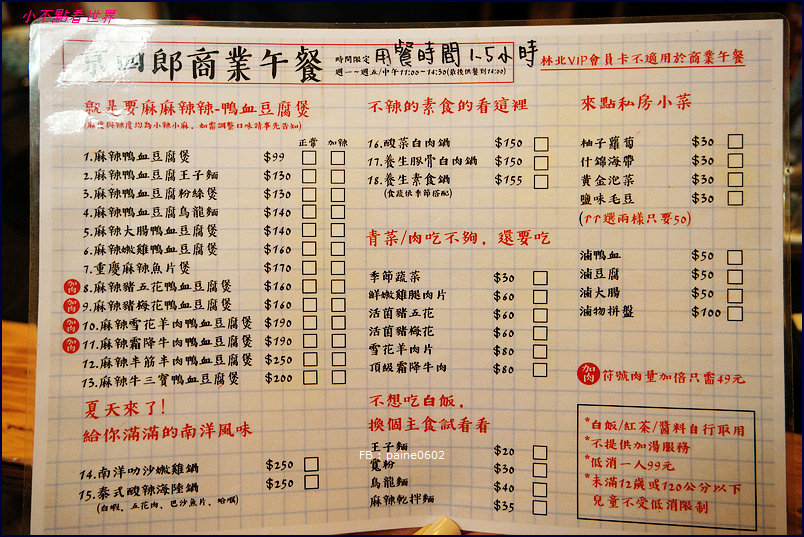 小不點看世界
京四郎商業午餐
時間限定 用餐時間1.5小時
週一~週五/中午11:00-14:30(最後供餐到14:00)
林北VIP會員卡不適用於商業午餐
就是要麻麻辣辣-鴨血豆腐煲
(麻度與辣度均為小辣小麻,如需調整口味請事先告知)
正常 加辣
1.麻辣鴨血豆腐煲 $99
2.麻辣鴨血豆腐王子麵 $130
3.麻辣鴨血豆腐粉絲煲 $130
4.麻辣鴨血豆腐烏龍麵 $140
5.麻辣大腸鴨血豆腐煲 $140
6.麻辣嫩雞鴨血豆腐煲 $160
7.重慶麻辣魚片煲 $170
加肉 8.麻辣豬五花鴨血豆腐煲 $160
加肉 9.麻辣豬梅花鴨血豆腐煲 $160
加肉 10.麻辣雪花羊肉鴨血豆腐煲 $190
加肉 11.麻辣霜降牛肉鴨血豆腐煲 $190
12.麻辣半筋半肉鴨血豆腐煲 $250
13.麻辣牛三寶鴨血豆腐煲 $200
夏天來了!
給你滿滿的南洋風味
14.南洋叻沙嫩雞鍋 $250
15.泰式酸辣海陸鍋 $250
(白蝦、五花肉、巴沙魚片、蛤蠣)
不辣的素食的看這裡
16.酸菜白肉鍋 $150
17.養生豚骨白肉鍋 $150
18.養生素食鍋 $155
(食蔬依季節搭配)
青菜/肉吃不夠,還要吃
季節蔬菜 $30
鮮嫩雞腿肉片 $60
活菌豬五花 $60
活菌豬梅花 $60
雪花羊肉片 $80
頂級霜降牛肉 $80
不想吃白飯,
換個主食試看看
王子麵 $20
寬粉 $30
烏龍麵 $40
麻辣乾拌麵 $35
FB : paine0602
來點私房小菜
柚子蘿蔔 $30
什錦海帶 $30
黃金泡菜 $30
鹽味毛豆 $30
(↑↑選兩樣只要50)
滷鴨血 $50
滷豆腐 $50
滷大腸 $50
滷物拼盤 $100
加肉 符號肉量加倍只需49元
*白飯/紅茶/醬料自行取用
*不提供加湯服務
*低消一人99元
*未滿12歲或120公分以下
兒童不受低消限制